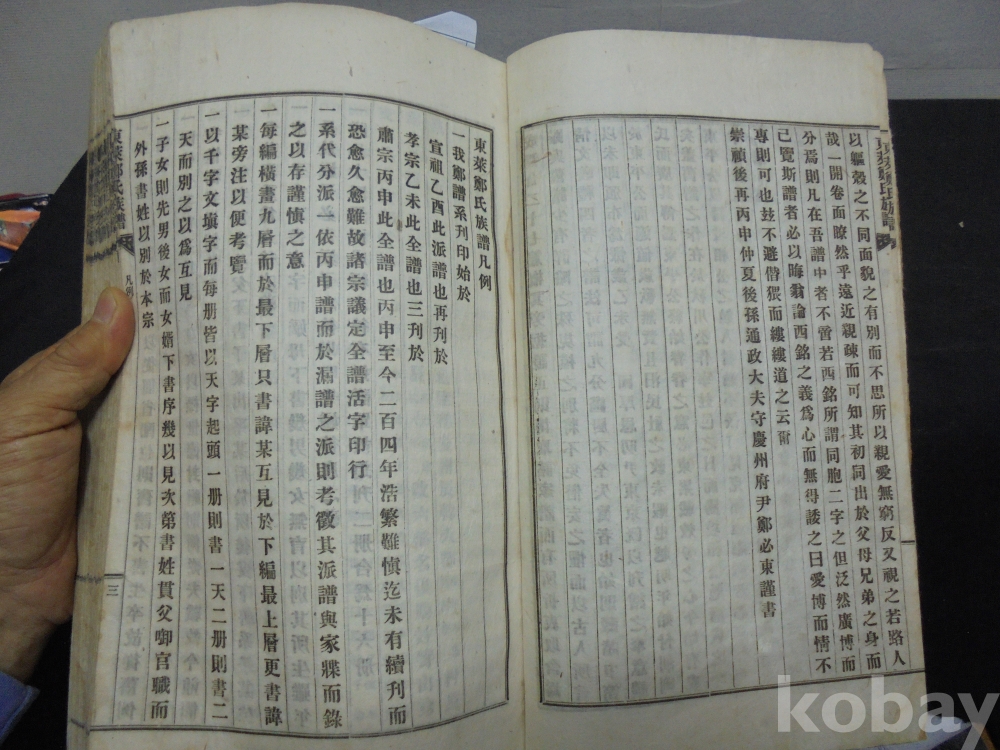 以軀殼之不同面貌之有別而不思所以親愛無窮反又視之若路人
哉一開卷面瞭然乎遠近親疎而可知其初同出於父母兄弟之身而
分焉則凡在吾譜中者不啻若西銘所謂同胞二字之但泛然廣博而
已覽斯譜者必以晦翁論西銘之義爲心而無得諉之曰愛博而情不
專則可也玆不避僭猥而縷縷道之云爾
崇禎後再丙申仲夏後孫通政大夫守慶州府尹鄭必東謹書
東萊鄭氏族譜
東萊鄭氏族譜凡例
一我鄭譜系刊印始於
宣祖乙酉此派譜也再刊於
孝宗乙未此全譜也三刊於
肅宗丙申此全譜也丙申至今二百四年浩繁難愼迄未有續刊而
恐愈久愈難故諸宗議定全譜活字印行
一系代分派一依丙申譜而於漏譜之派則考徵其派譜與家牒而錄
之以存謹愼之意
一每編橫畫九層而於最下層只書諱某互見於下編最上層更書諱
某旁注以便考覽
一以千字文塡字而每册皆以天字起頭一册則書一天二册則書二
天而別之以爲互見
一子女則先男後女而女婿下書序幾以見次第書姓貫父啣官職而
外孫書姓以別於本宗
東萊鄭氏族譜
凡例
三
kobay